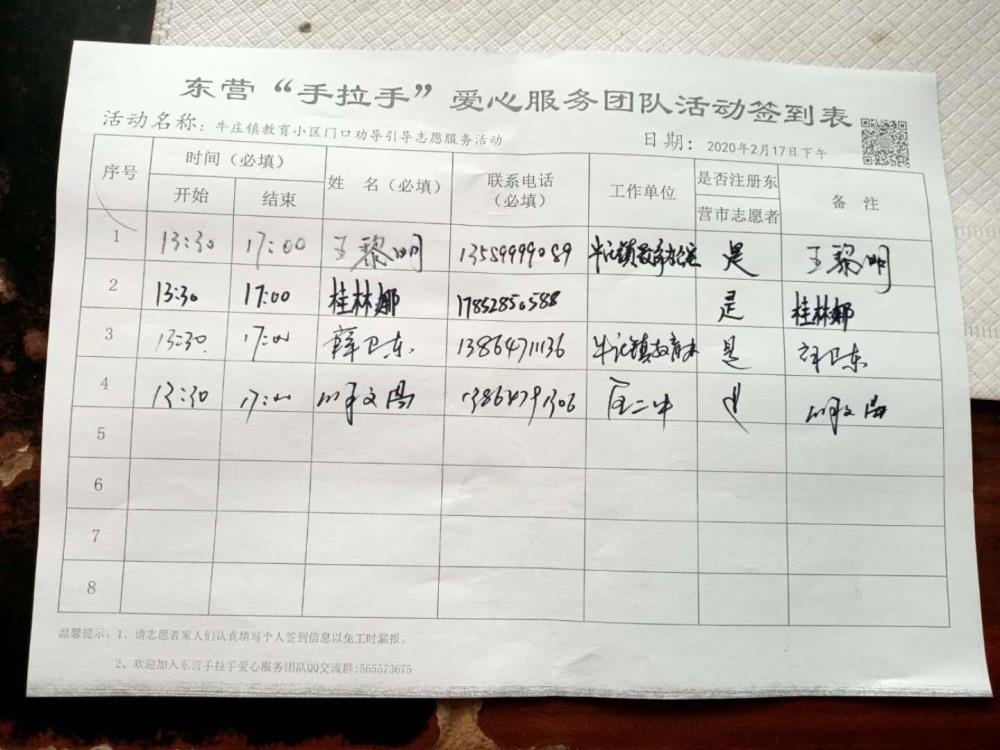 东营“手拉手”爱心服务团队活动签到表
活动名称：牛庄镇教育小区门口劝导引导志愿服务活动 日期：2020年2月17日下午
序号 时间（必填） 姓 名（必填） 联系电话（必填） 工作单位 是否注册东营市志愿者 备 注
开始 结束
1 13:30 17:00 王黎明 13589999089 牛庄镇教育办公室 是 王黎明
2 13:30 17:00 桂林娜 17852850588 是 桂林娜
3 13:30 17:00 薛卫东 13864711136 牛庄镇教育办 是 薛卫东
4 13:30 17:00 文昌 13864791306 是 文昌
5
6
7
8
温馨提示：1、请志愿者家人们认真填写个人签到信息以免工时漏报。
2、欢迎加入东营手拉手爱心服务团队QQ交流群:565573675